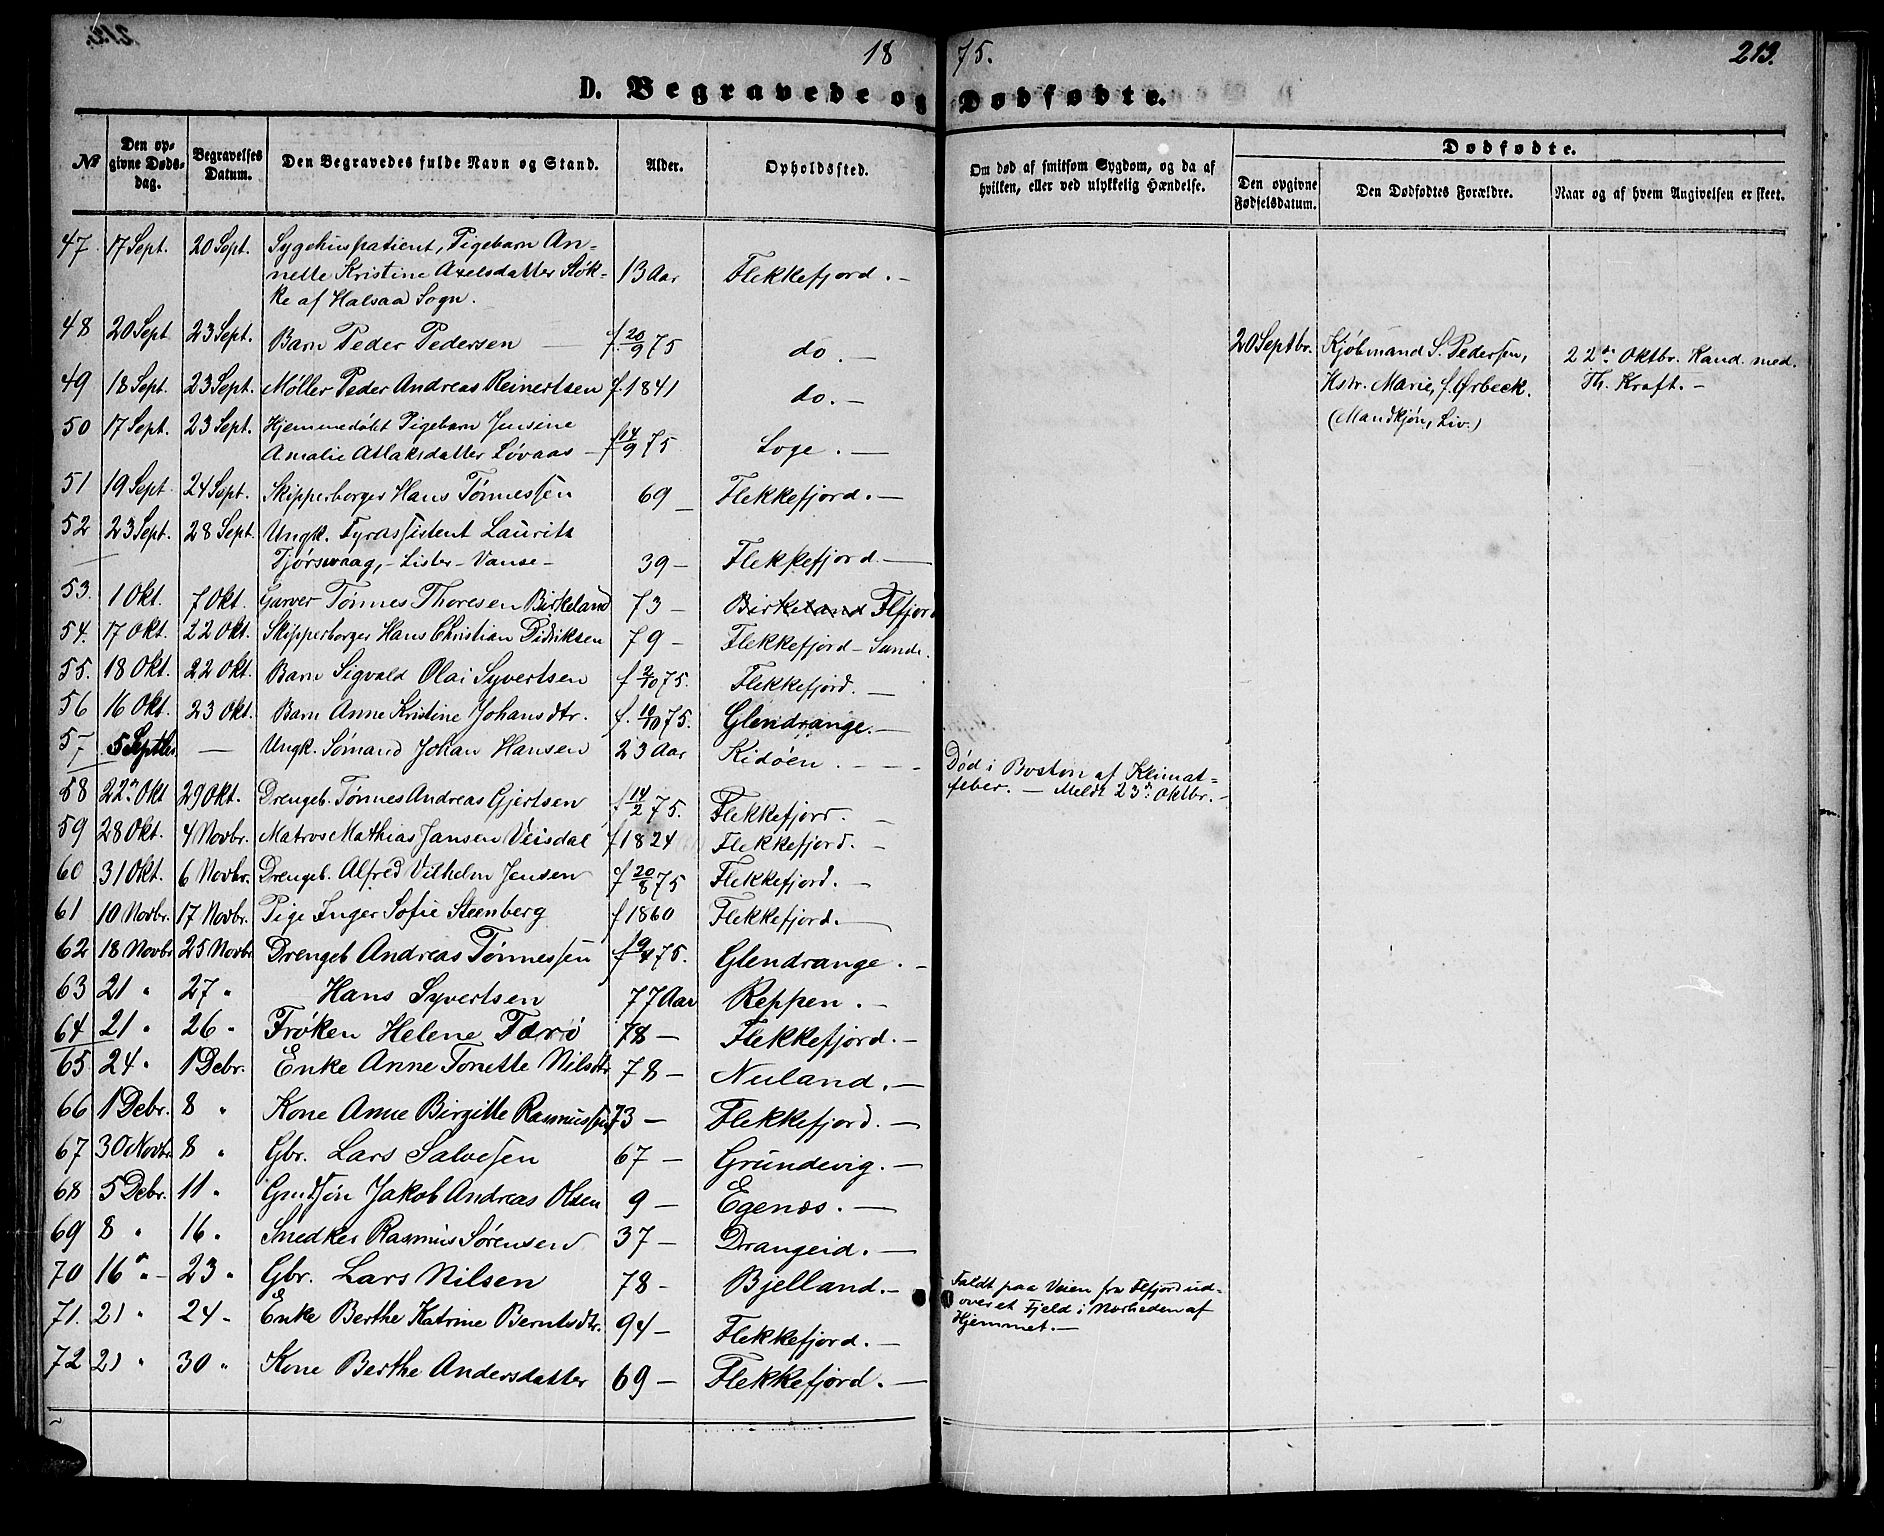 1875.
213.
D. Begravede og Dødfødte.
№
Den opgivne Dødsdag.
Begravelses Datum.
Den Begravedes fulde Navn og Stand.
Alder.
Opholdssted.
Om død af smitsom Sygdom, og da af hvilken, eller ved ulykkelig Hændelse.
Dødfødte.
Den opgivne Fødselsdatum.
Den Dødfødtes Forældre.
Naar og af hvem Angivelsen er skeet.
47 17 Sept. 20 Sept. Sygehuspatient, Pigebarn An-
nette Kristine Axelsdatter Støk- 13 Aar Flekkefjord. —
ke af Halsaa Sogn.
48 20 Sept 23 Sept. Barn Peder Pedersen — f. 20/9 75 do. — 20 Septbr. Kjøbmand S. Pedersen, 22de Oktbr. Kand. med.
Hstr. Marie, f. Ørbeck. Th. Kraft. —
(Mandkjøn, Liv.)
49 18 Sept. 23 Sept. Møller Peder Andreas Reinertsen f. 1841 do. —
50 17 Sept. 23 Sept. Hjemmedøbt Pigebarn Jensine
Amalie Atlaksdatter Løvaas — f 14/9 75 Loge. —
51 19 Sept 24 Sept. Skipperborger Hans Tønnessen 69 — Flekkefjord. —
52 23 Sept. 28 Sept. Ungk. Fyrassistent Laurits
Tjørsvaag, — Lister — Vanse — 39 — Flekkefjord. —
53. 1 Okt. 7 Okt. Garver Tønnes Thoresen Birkeland 73 — Birkeland Flfjord
54. 17 Okt. 22 Okt. Skipperborger Hans Christian Didriksen 79 — Flekkefjord — Sunde.
55. 18 Okt. 22 Okt. Barn Sigvald Olai Syvertsen f 2/10 75. Flekkefjord. —
56 16 Okt. 23 Okt. Barn Anne Kristine Johansdtr. f. 10/10 75. Glendrange. —
57 5 Septbr — Ungk. Sømand Johan Hansen 23 Aar Kidøen. — Død i Boston af Klimat-
feber. — Meldt 23de Oktbr. —
58 22n Okt 29 Okt. Drengeb. Tønnes Andreas Gjertsen f 14/2 75. Flekkefjord. —
59 28 Okt. 4 Novbr. Matros Mathias Jansen Veisdal f 1824 Flekkefjord. —
60 31 Okt. 6 Novbr. Drengeb. Alfred Vilhelm Jensen f 20/8 75 Flekkefjord. —
61 10 Novbr. 17 Novbr. Pige Inger Sofie Steenberg f 1860 Flekkefjord. —
62 18 Novbr 25 Novbr Drengeb Andreas Tønnessen f 9/4 75. Glendrange. —
63 21 " 27 " Hans Syvertsen 77 Aar Reppen. —
64 21 " 26 " Frøken Helene Færø 78 — Flekkefjord. —
65 24 " 1 Debr. Enke Anne Tonette Nilsdtr 78 — Nuland. —
66 1 Debr. 8 " Kone Anne Birgitte Rasmussen 73 — Flekkefjord. —
67 30 Novbr 8 " Gbr. Lars Salvesen 67 — Grundevig. —
68 5 Debr. 11 " Gudsøn Jakob Andreas Olsen 9 — Egenæs. —
69 8 " 16 " Snedker Rasmus Sørensen 37 — Drangeid. —
70 16 " — 23 " Gbr. Lars Nilsen 78 — Bjelland. — Faldt paa Veien fra Flfjord ud-
over et Fjeld i Nærheden af
Hjemmet. —
71. 21 " 24 " Enke Berthe Katrine Berntsdtr. 94 — Flekkefjord. —
72 21 " 30 " Kone Berthe Andersdatter 69 — Flekkefjord. —